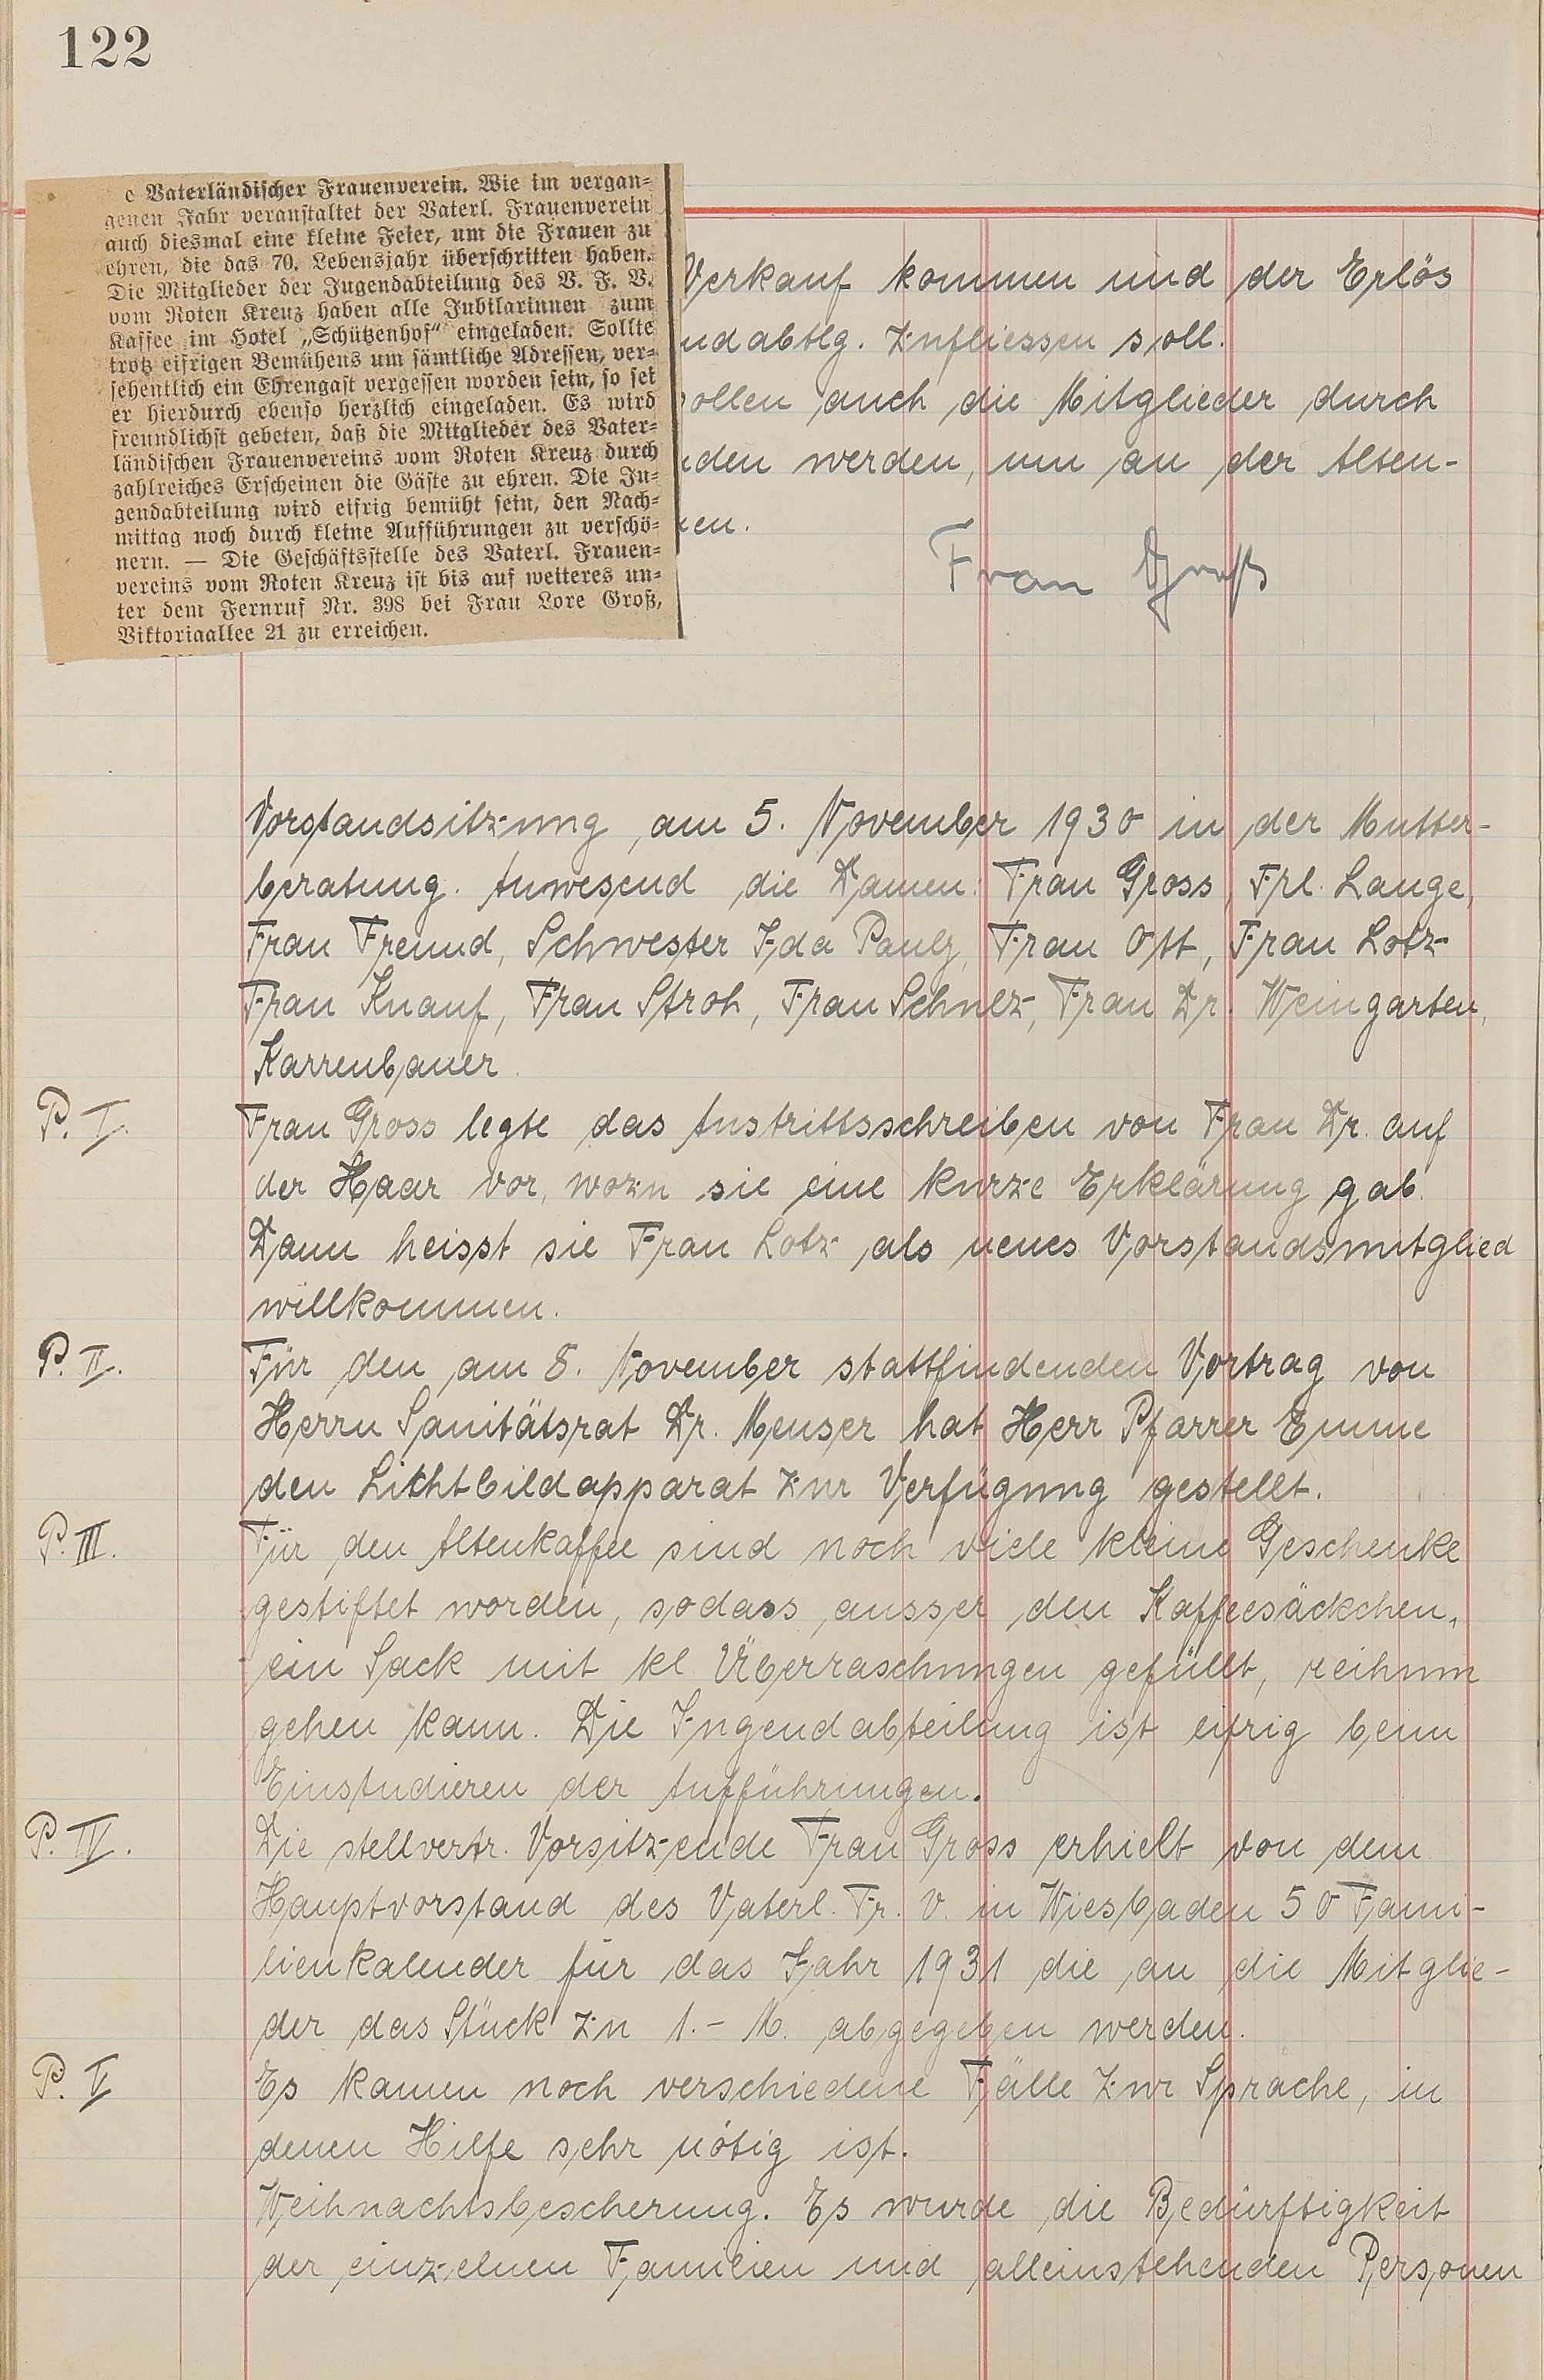 122
c Vaterländischer Frauenverein. Wie im vergan-
genen Jahr veranstaltet der Vaterl. Frauenverein
auch diesmal eine kleine Feier, um die Frauen zu
ehren, die das 70. Lebensjahr überschritten haben.
Die Mitglieder der Jugendabteilung des V. F. V.
vom Roten Kreuz haben alle Jubilarinnen zum
Kaffee im Hotel „Schützenhof“ eingeladen. Sollte
trotz eifrigen Bemühens um sämtliche Adressen, ver-
sehentlich ein Ehrengast vergessen worden sein, so sei
er hierdurch ebenso herzlich eingeladen. Es wird
freundlichst gebeten, daß die Mitglieder des Vater-
ländischen Frauenvereins vom Roten Kreuz durch
zahlreiches Erscheinen die Gäste zu ehren. Die Ju-
gendabteilung wird eifrig bemüht sein, den Nach-
mittag noch durch kleine Aufführungen zu verschö-
nern. — Die Geschäftsstelle des Vaterl. Frauen-
vereins vom Roten Kreuz ist bis auf weiteres un-
ter dem Fernruf Nr. 398 bei Frau Lore Groß,
Viktoriaallee 21 zu erreichen.
Verkauf kommen und der Erlös
ndabtlg. zufliessen soll.
ollen auch die Mitglieder durch
den werden, um an der Alten-
en.
Frau Groß
Vorstandsitzung am 5. November 1930 in der Mutter-
beratung. Anwesend die Damen: Frau Gross, Frl. Lange,
Frau Freund, Schwester Ida Pauly, Frau Ott, Frau Lotz
Frau Knauf, Frau Stroh, Frau Schulz, Frau Dr. Weingarten,
Karrenbauer.
P. I. Frau Gross legte das Austrittsschreiben von Frau Dr. auf
der Haar vor, wozu sie eine kurze Erklärung gab.
Dann heisst sie Frau Lotz als neues Vorstandsmitglied
willkommen.
P. II. Für den am 8. November stattfindenden Vortrag von
Herrn Sanitätsrat Dr. Menser hat Herr Pfarrer Emme
den Lichtbildapparat zur Verfügung gestellt.
P. III. Für den Altenkaffee sind noch viele kleine Geschenke
gestiftet worden, sodass ausser den Kaffeesäckchen,
ein Sack mit kl. Überraschungen gefüllt, reihum
gehen kann. Die Jugendabteilung ist eifrig beim
Einstudieren der Aufführungen.
P. IV. Die stellvertr. Vorsitzende Frau Gross erhielt von dem
Hauptvorstand des Vaterl. Fr. V. in Wiesbaden 50 Fami-
lienkalender für das Jahr 1931 die an die Mitglie-
der das Stück zu 1.- M. abgegeben werden.
P. V Es kamen noch verschiedene Fälle zur Sprache, in
denen Hilfe sehr nötig ist.
Weihnachtsbescherung. Es wurde die Bedürftigkeit
der einzelnen Familien und alleinstehenden Personen